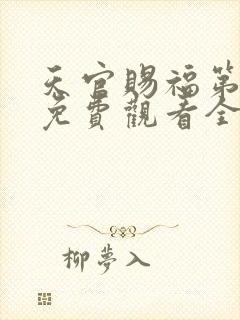 天官賜福第
免費觀看全
柳夢入